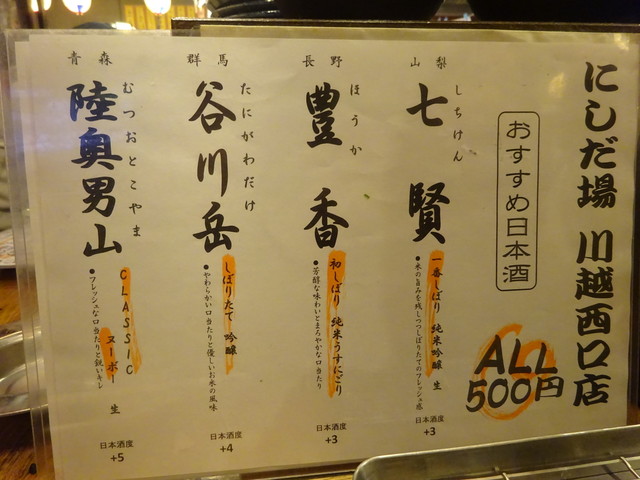 にしだ場 川越西口店
おすすめ日本酒
ALL
500円
山梨
七賢
しちけん
一番しぼり 純米吟醸 生
●米の旨みを残しつつしぼりたてのフレッシュ感
日本酒度
+3
長野
豊香
ほうか
初しぼり 純米うすにごり
●芳醇な味わいとまろやかな口当たり
日本酒度
+3
群馬
谷川岳
たにがわだけ
しぼりたて 吟醸
●やわらかい口当たりと優しいお米の風味
日本酒度
+4
青森
陸奥男山
むつおとこやま
CLASSIC
ヌーボー 生
●フレッシュな口当たりと鋭いキレ
日本酒度
+5